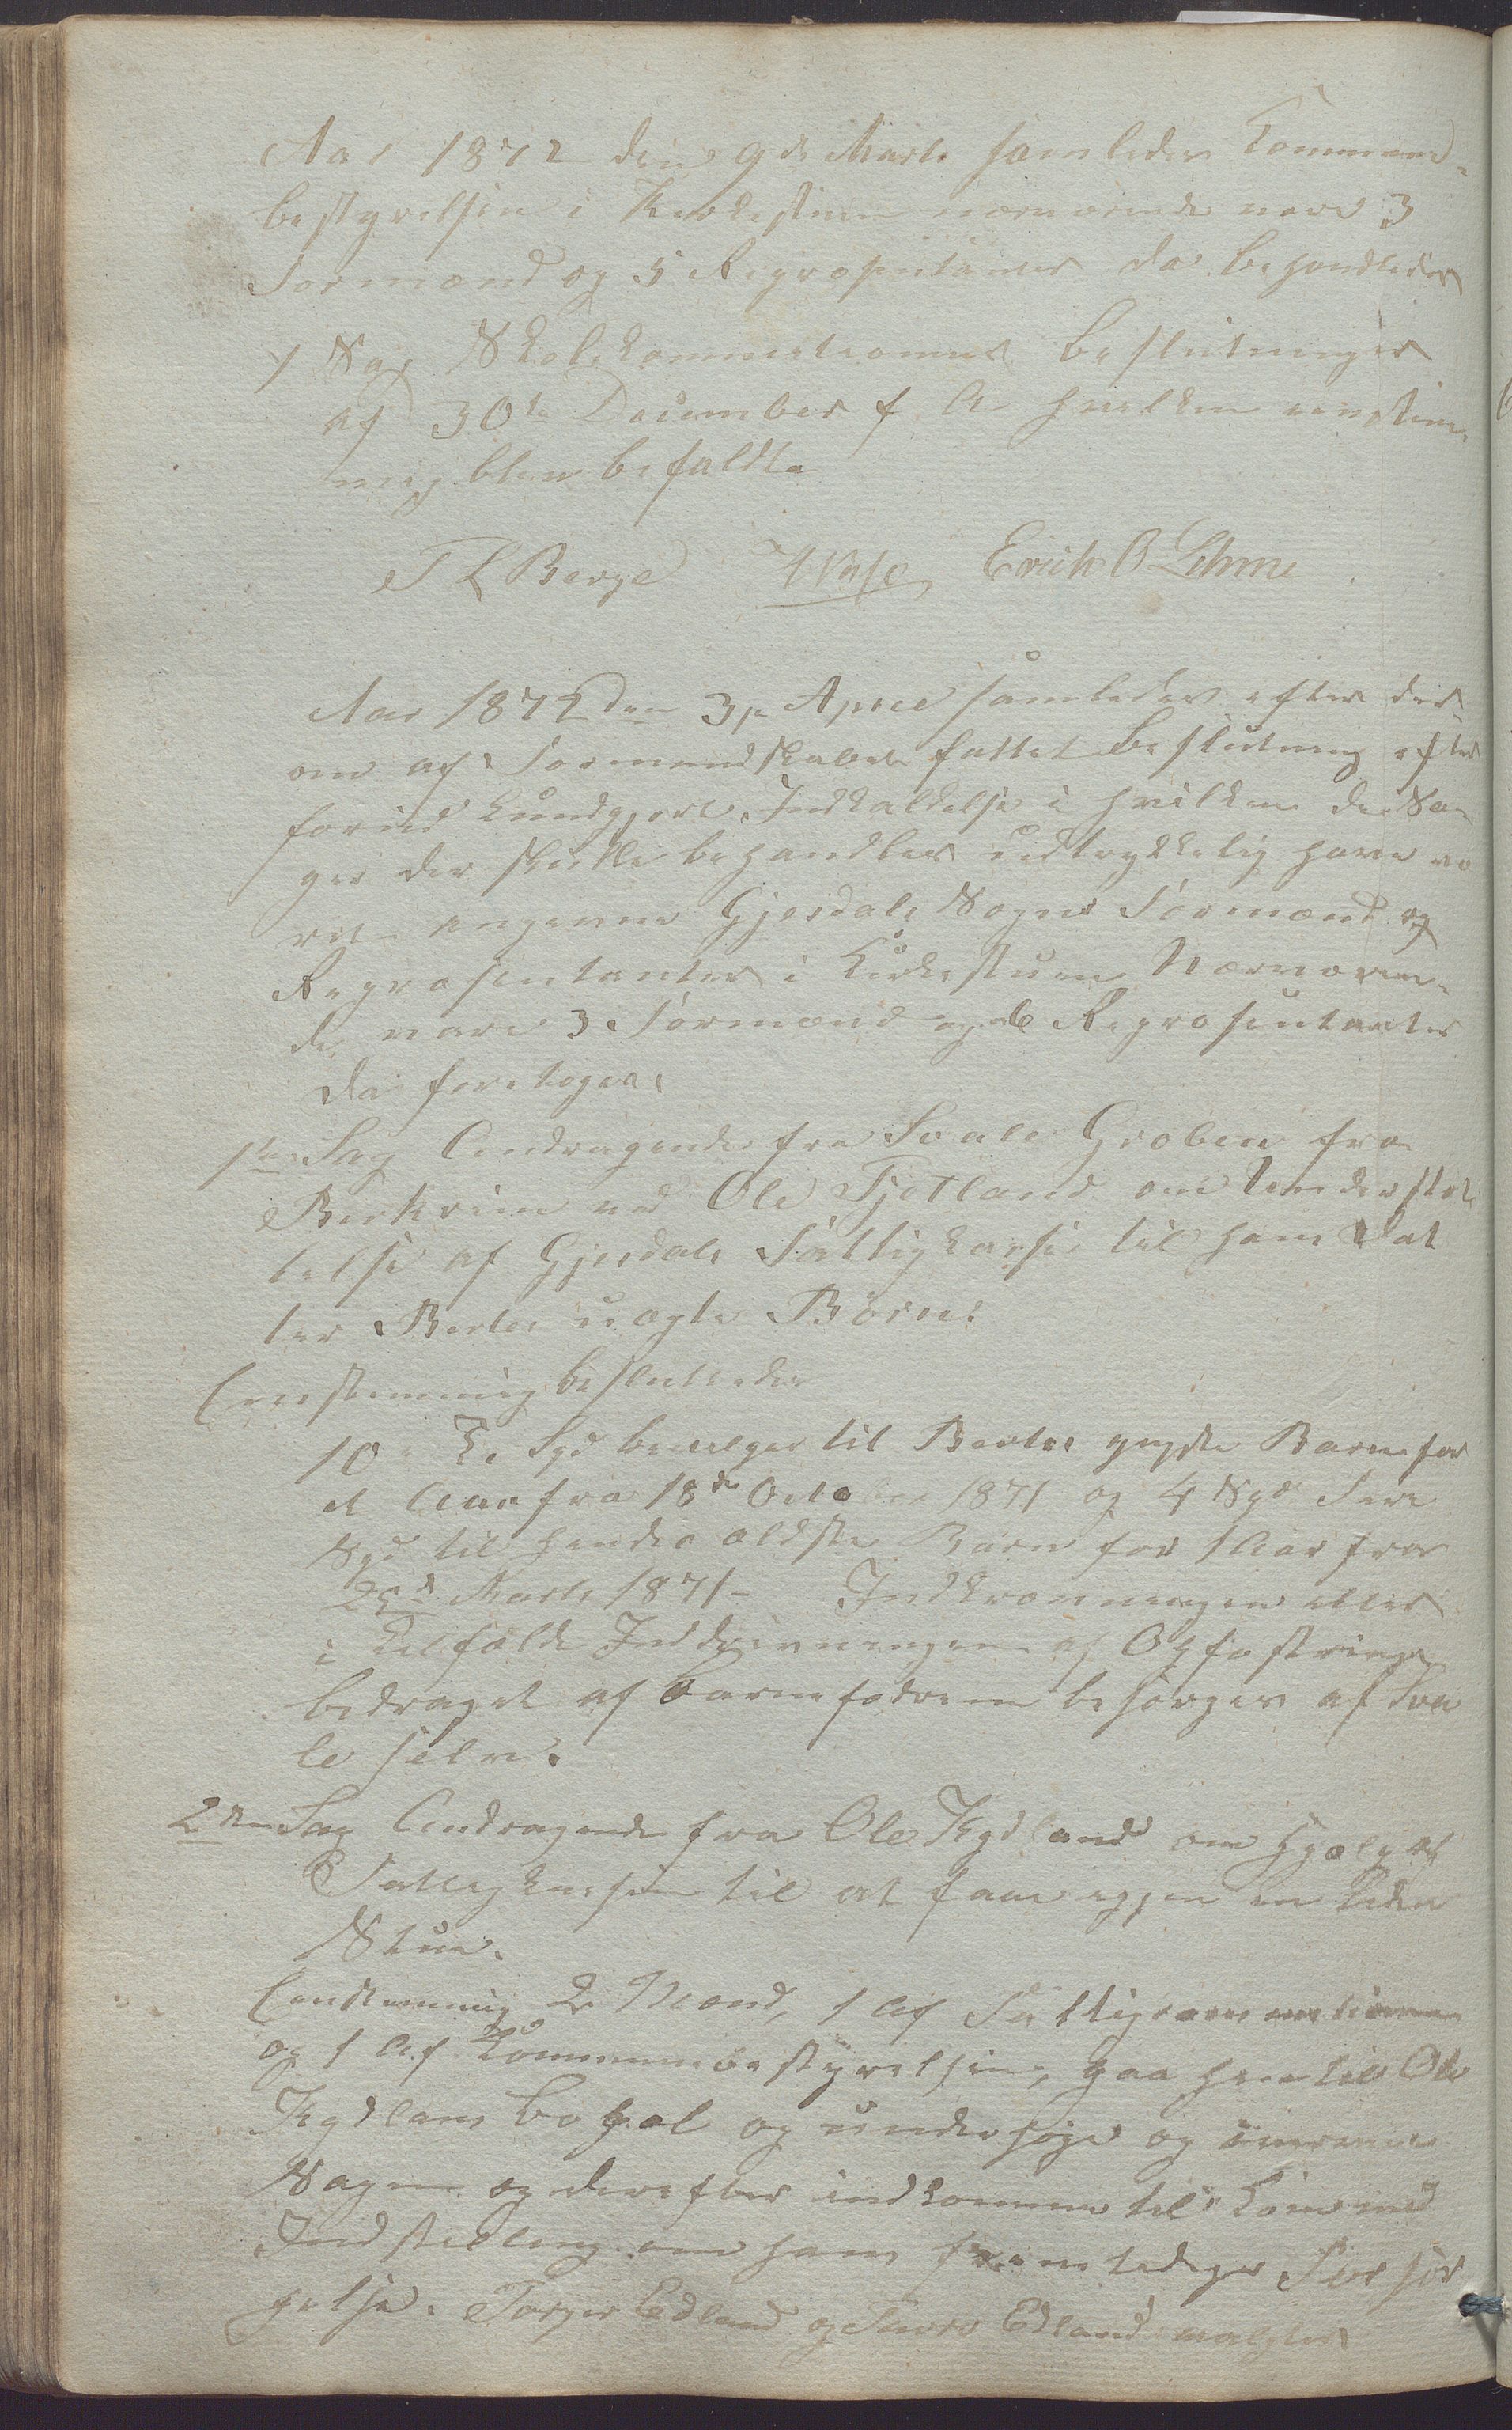 Aar 1872 den 9de Marts samledes Commune-
bestyrelsen i Kirkestuen nærværende vare 3
Formænd og 5 Repræsentanter da behandledes
1 Sag Skolekommitionens Beslutninger
af 30te December f A hvilken eenstem-
mig blev befaldt.
T L Berge Erich O Lihme
Aar 1872 den 3je April samledes efter der-
om af Formandskabet fattet Beslutning efter
forud kundgjort Indkaldelse i hvilken de Sa-
ger der skulle behandles udtrykkelig have væ
ret angivne Gjesdals Sogns Formænd og
Repræsentanter i Kirkestuen Nærværen-
de vare 3 Formænd og 6 Repræsentanter
da foretoges.
1ste Sag Andragende fra Svale Groben fra
Birkrim ved Ole Fjotland om Understøt-
telse af Gjesdals Fattigkasse til hans Dat
ter Bertes uægte Børn:
Eenstemmig besluttedes
10 Spd bevilges til Bertes yngste Barn for
et Aar fra 18de October 1871 og 4 Spd Fire
Spd til hendes ældste Barn for 1 Aar fra
25de Marts 1871 - Indkrævningen eller
i Tilfælde Inddrivningen af Opfostrings
bedraget af Barnefædrene besørges af Sva
le selv.
2den Sag Andragende fra Ole Kydland om Hjælp af
Fattigkassen til at faae igjen en liden
Stue.
Eenstemmig 2 Mænd, 1 af Fattigcommissionen
og 1 af Kommunebestyrelsen, gaa hen til Ole
Kydlans bopæl og undersøge og
Sagen og derefter indkomme til Komm med
Indstilling om hans fremtidige Forsør
gelse. Torger Edland og Edland valgtes